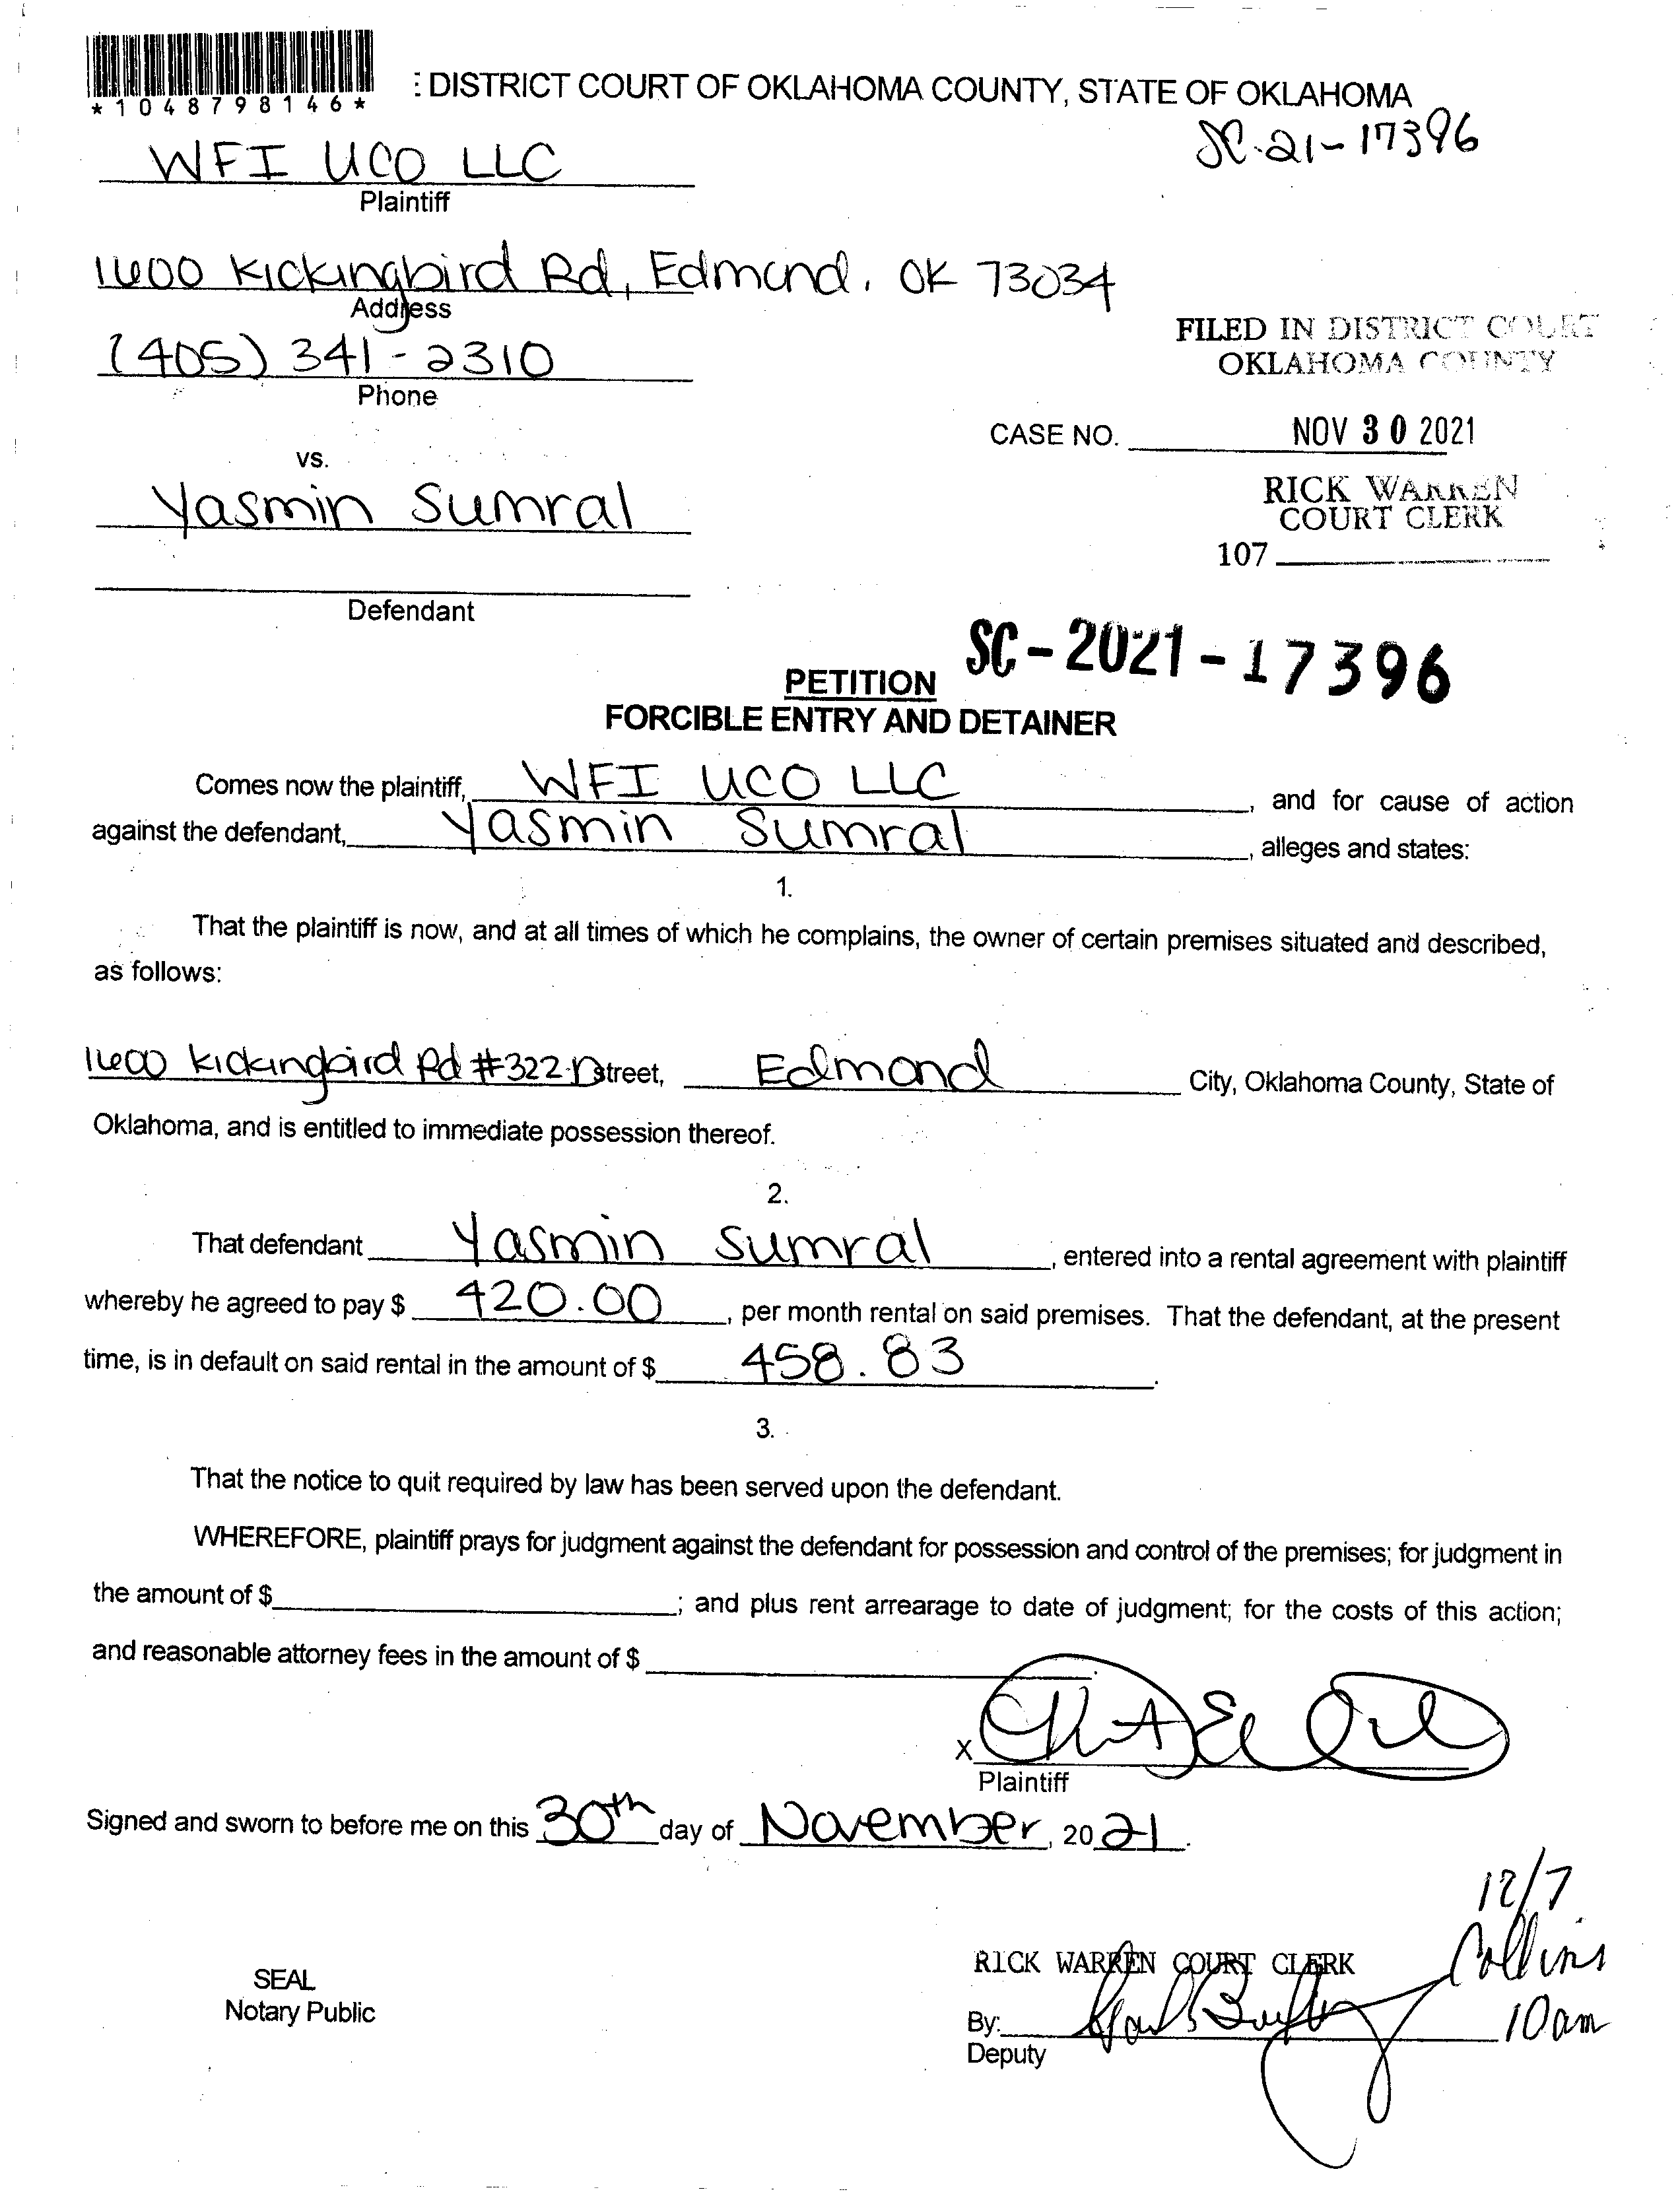 *1048798146*
: DISTRICT COURT OF OKLAHOMA COUNTY, STATE OF OKLAHOMA
SC-21-17396
WFI UCO LLC
Plaintiff
1600 Kickingbird Rd, Edmond, OK 73034
Address
(405) 341-2310
Phone
FILED IN DISTRICT COURT
OKLAHOMA COUNTY
CASE NO. NOV 30 2021
vs.
RICK WARREN
COURT CLERK
Yasmin Sumral
107
Defendant
SC-2021-17396
PETITION
FORCIBLE ENTRY AND DETAINER
Comes now the plaintiff, WFI UCO LLC, and for cause of action
against the defendant, Yasmin Sumral, alleges and states:
1.
That the plaintiff is now, and at all times of which he complains, the owner of certain premises situated and described,
as follows:
1600 Kickingbird Rd #322 Street, Edmond City, Oklahoma County, State of
Oklahoma, and is entitled to immediate possession thereof.
2.
That defendant Yasmin Sumral, entered into a rental agreement with plaintiff
whereby he agreed to pay $ 420.00, per month rental on said premises. That the defendant, at the present
time, is in default on said rental in the amount of $ 458.83.
3.
That the notice to quit required by law has been served upon the defendant.
WHEREFORE, plaintiff prays for judgment against the defendant for possession and control of the premises; for judgment in
the amount of $ ; and plus rent arrearage to date of judgment; for the costs of this action;
and reasonable attorney fees in the amount of $ .
X
Plaintiff
Signed and sworn to before me on this 30th day of November, 2021.
12/7
Collins
10am
RICK WARREN COURT CLERK
SEAL
Notary Public
By:
Deputy